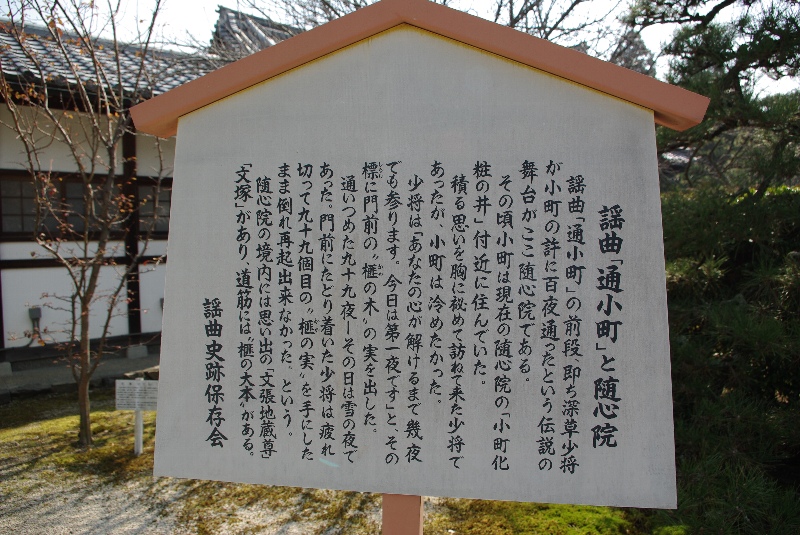 謡曲「通小町」と随心院
謡曲「通小町」の前段、即ち深草少将
が小町の許に百夜通ったという伝説の
舞台がここ随心院である。
その頃小町は現在の随心院の「小町化
粧の井」付近に住んでいた。
積る思いを胸に秘めて訪ねて来た少将で
あったが、小町は冷めたかった。
少将は「あなたの心が解けるまで幾夜
でも参ります。今日は第一夜です」と、その
標に門前の〝榧の木〟の実を出した。
通いつめた九十九夜―その日は雪の夜で
あった。門前にたどり着いた少将は疲れ
切って九十九個目の〝榧の実〟を手にした
まま倒れ再起出来なかった、という。
随心院の境内には思い出の「文張地蔵尊」
「文塚」があり、道筋には「榧の大本」がある。
謡曲史跡保存会